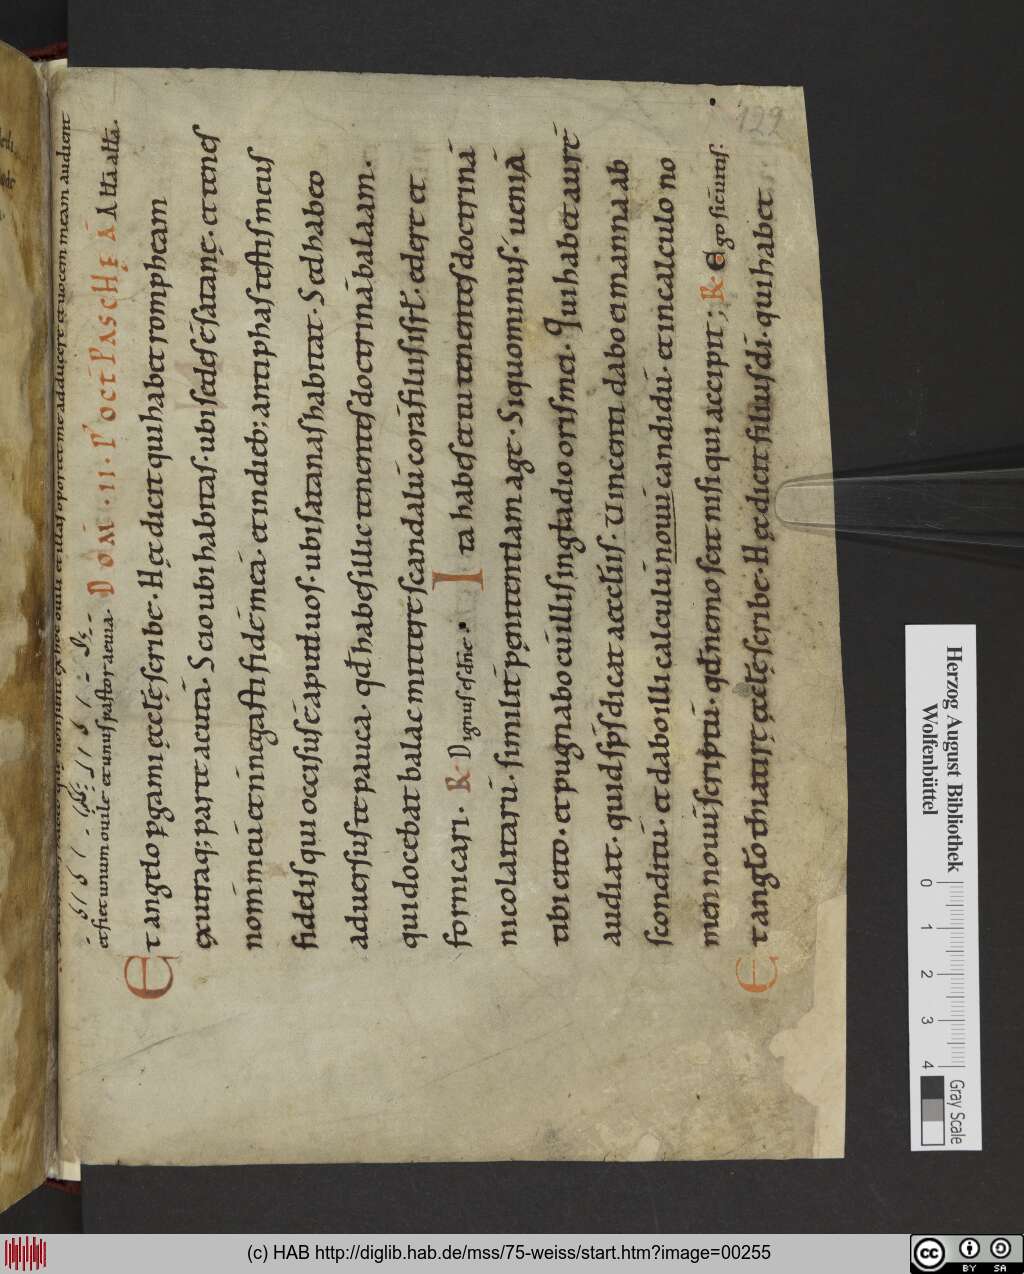 et fiet unum ouile et unus pastor aeuia. DOM̄. II. P' OCT PASCHE A Al̄l̄a al̄l̄a.
Et angelo ꝑgami ęccl̄ę scribe. Hęc dicit qui habet rompheam
ex utraq; parte acutā. Scio ubi habitas. ubi sedes ē satanę. et tenes
nom̄ meū et n̄ negasti fidē meā. et in dieb; antiphas testis meus
fidelis qui occisus ē aput uos. ubi satanas habitat. Sed habeo
aduersus te pauca. qd̄ habes illic tenentes doctrinā balaam.
qui docebat balac mittere scandalū corā filiis isrl̄. edere et
fornicari. R. Dignus es dn̄e. Ita habes et tu tenentes doctrinā
nicolaitarū. similit̄ penitentiam age. Si quominus. ueniā
tibi cito. et pugnabo cū illis in gladio oris mei. Qui habet aurē
audiat. quid sp̄s dicat aeccl̄iis. Vincenti dabo ei manna ab
sconditū. et dabo illi calculū nouū candidū. et in calculo no
men nouū scriptū. qd̄ nemo scit nisi qui accipit; R. Ego sicut uitis.
Et angl̄o thiatirę ęccl̄ę scribe. Hęc dicit filius dī. qui habet
122
Herzog August Bibliothek
Wolfenbüttel
0 1 2 3 4
Gray Scale
(c) HAB http://diglib.hab.de/mss/75-weiss/start.htm?image=00255
cc BY SA